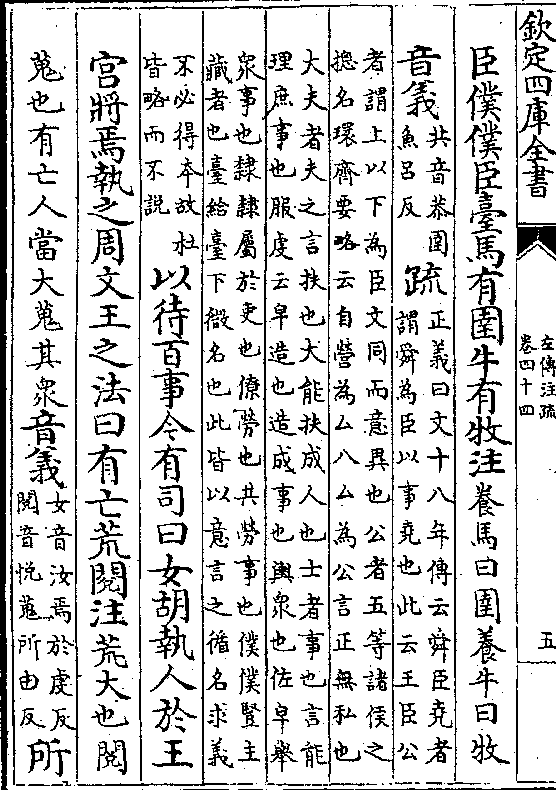 欽定四庫全書
左傳注疏
卷四十四
五
臣僕僕臣臺馬有圉牛有牧注養馬曰圉養牛曰牧
音義共音恭圉
魚吕反疏正義曰文十八年傳云舜臣堯者
謂舜為臣以事堯也此云王臣公
者謂上以下為臣文同而意異也公者五等諸侯之
揔名環齊要略云自營為厶八厶為公言正無私也
大夫者夫之言扶也大能扶成人也士者事也言能
理庶事也服虔云皁造也造成事也輿衆也佐皁舉
衆事也隸隸屬於吏也僚勞也共勞事也僕僕豎主
藏者也臺給臺下微名也此皆以意言之循名求義
不必得本故杜
皆略而不說以待百事今有司曰女胡執人於王
宫將焉執之周文王之法曰有亡荒閱注荒大也閱
蒐也有亡人當大蒐其衆音義女音汝焉於虔反
閱音悅蒐所由反所